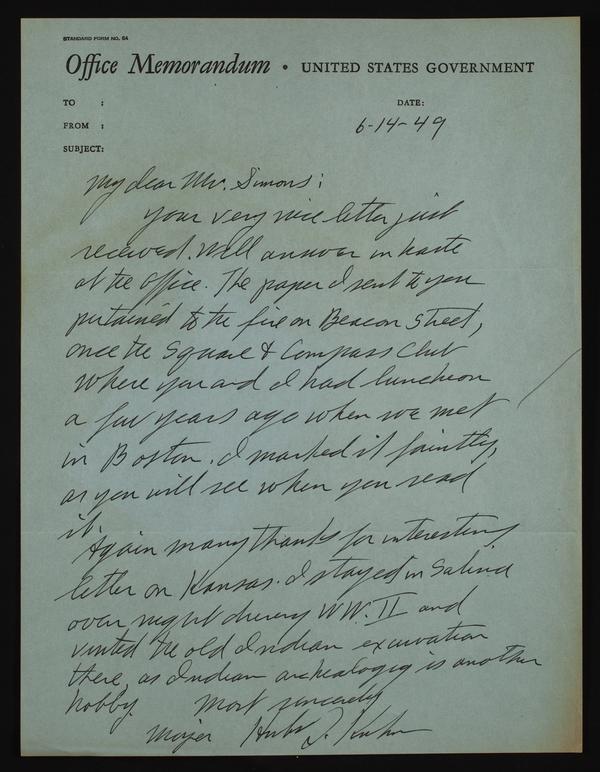 STANDARD FORM NO. 64
Office Memorandum • UNITED STATES GOVERNMENT
TO :
DATE:
FROM :
6-14-49
SUBJECT:
My dear Mr. Simons:
Your very nice letter just
received. Will answer in haste
at the office. The paper I sent to you
pertained to the fire on Beacon Street,
once the Square & Compass Club
where you and I had luncheon
a few years ago when we met
in Boston. I marked it faintly,
as you will see when you read
it.
Again many thanks for interesting
letter on Kansas. I stayed in Salina
over night during WW. II and
visited the old Indian excavation
there, as Indian archealogy is another
hobby. Most sincerely
Major J. Kuhn